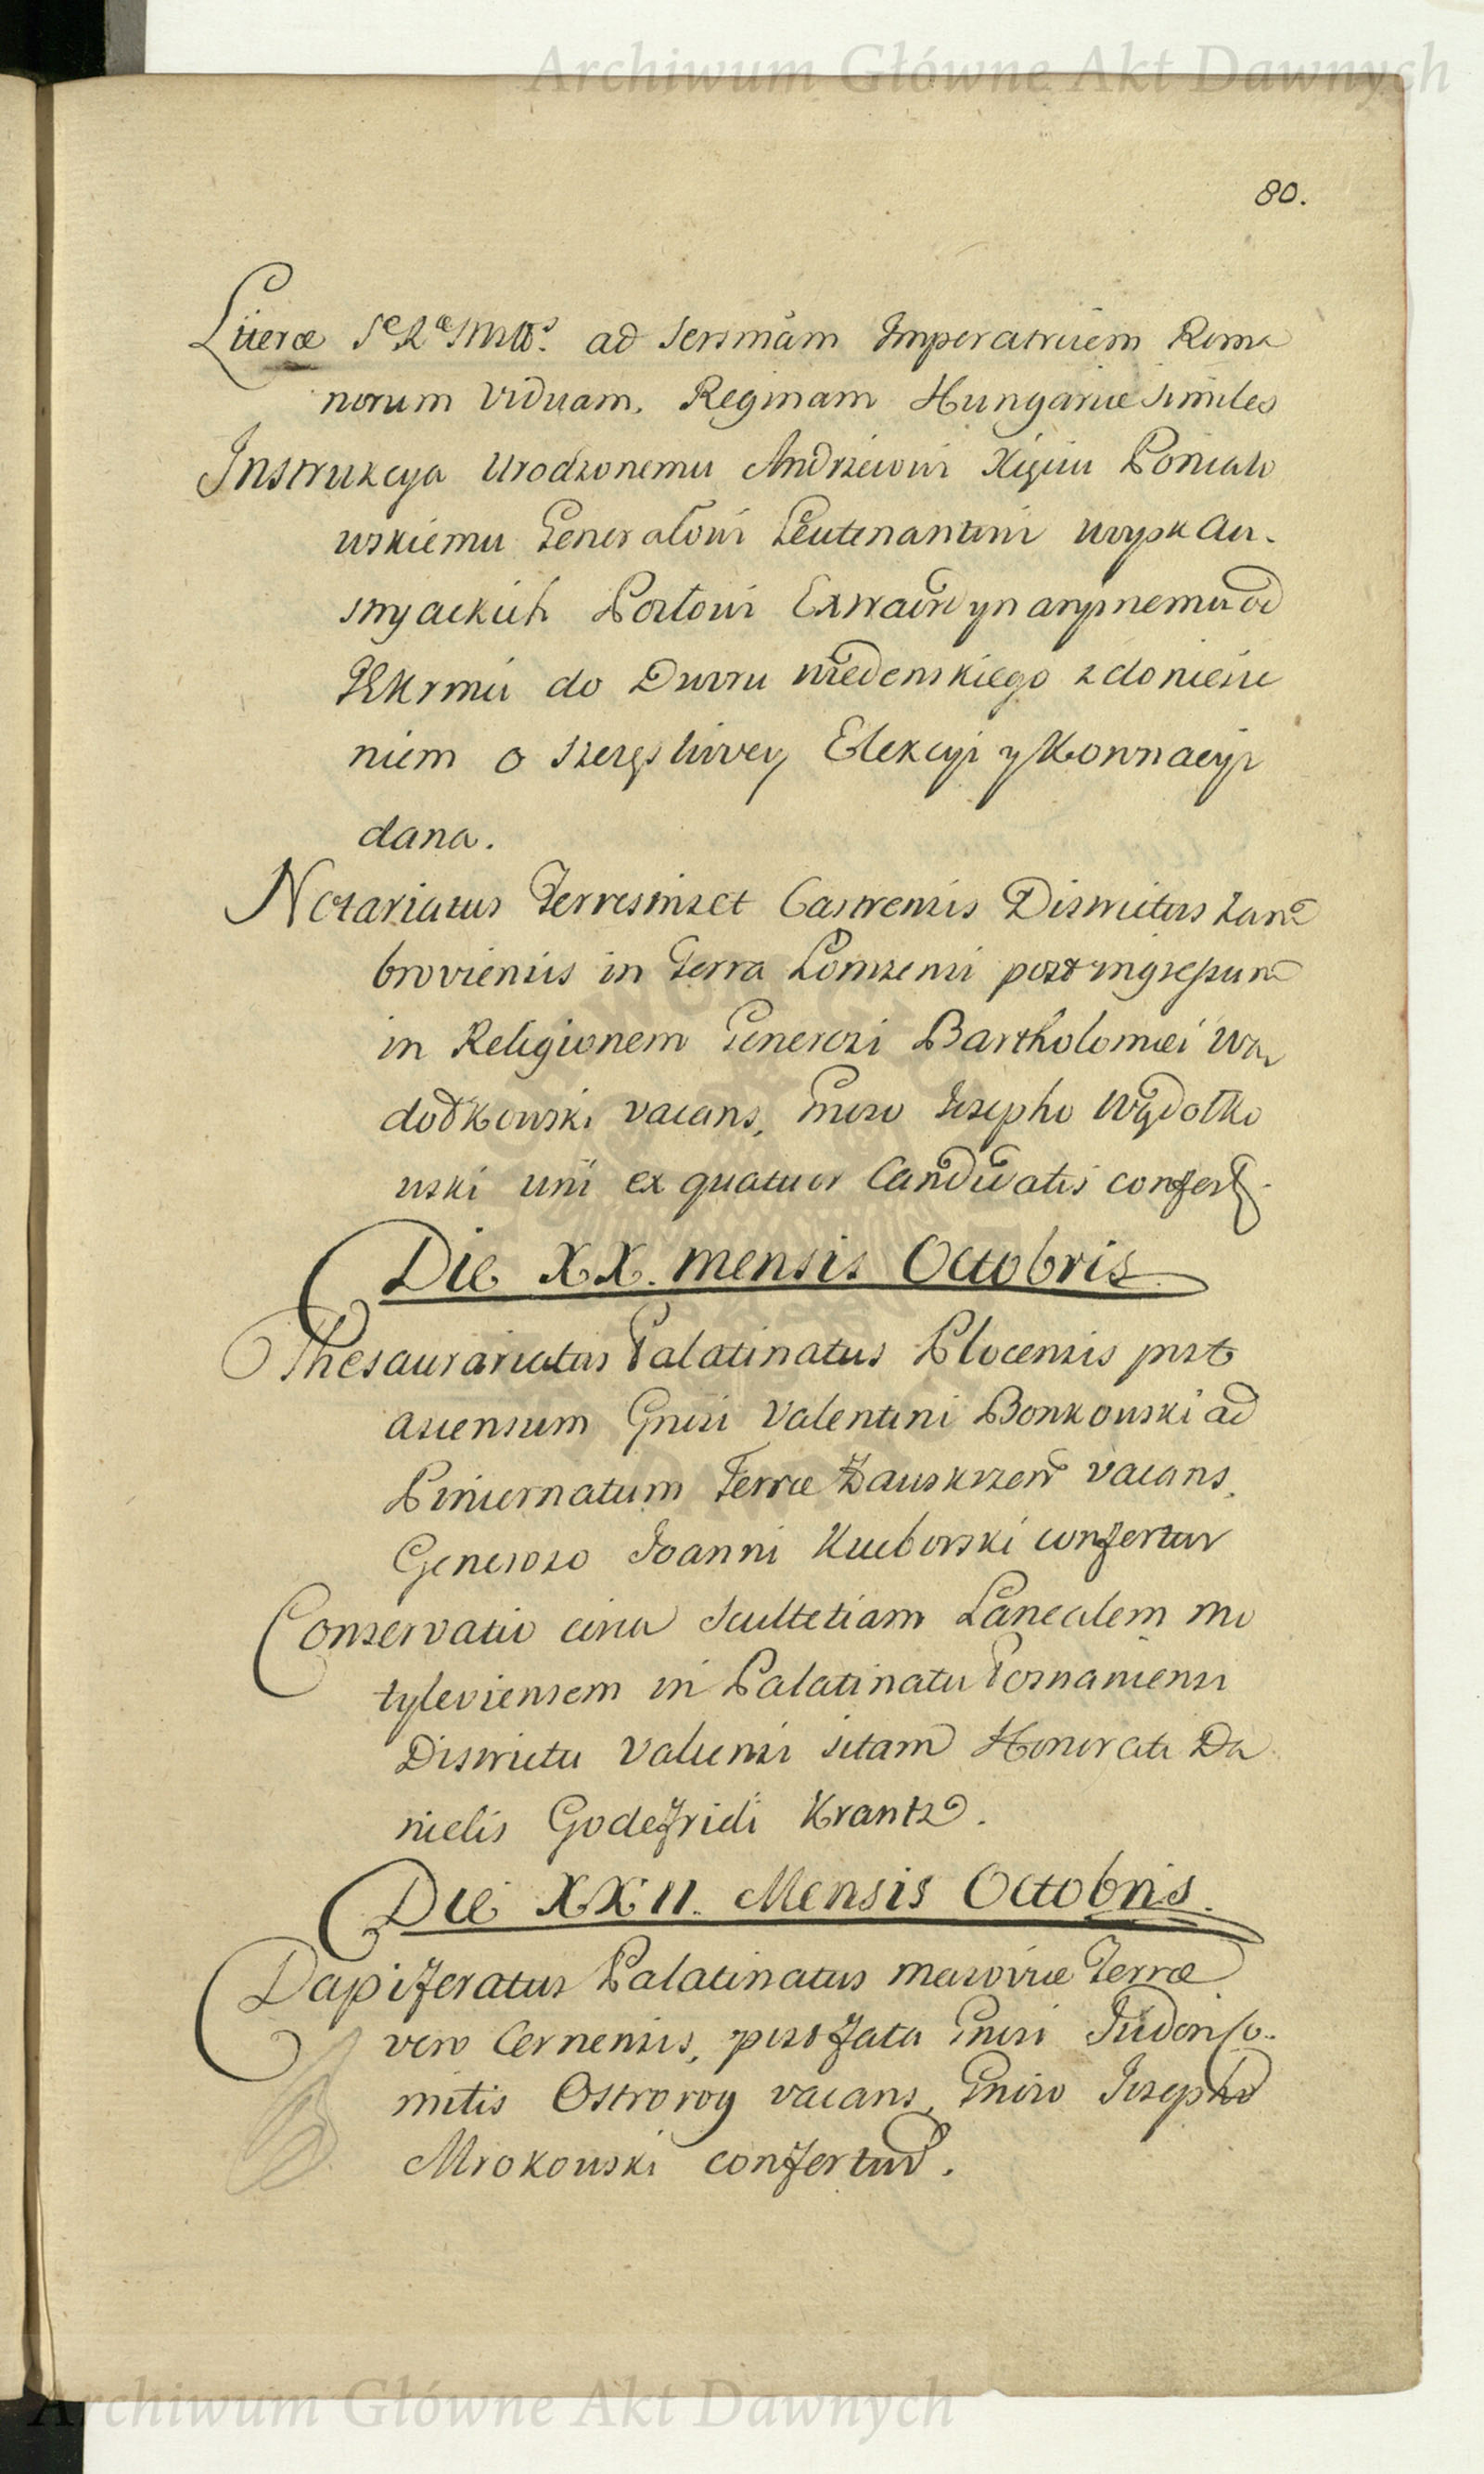 Archiwum Główne Akt Dawnych
80.
Literæ Sæ Ræ Mttis. ad Sersmam Imperatricem Roma
norum Viduam, Reginam Hungariæ similes
Instrukcya Urodzonemu Andrzeiowi Xięciu Poniato
wskiemu Generałowi Leutenantowi woysk Au.
stryackich Posłowi Extraordynaryinemu od
JKkrmci do Dworu wiedenskiego z doniesie
niem o szczęsliwey Elekcyi y Koronacyi
dana.
Notariatus Terrestris et Castrensis Districtus Zam
broviensis in Terra Lomzensi post ingressum
in Religionem Generosi Bartholomæi Wą
dołkowski vacans, Gnroso Josepho Wądołko
wski uni ex quatuor Candidatis confert.
Die XX. mensis Octobris.
Thesaurariatus Palatinatus Plocensis post
ascensum Gnrsi Valentini Bonkowski ad
Pincernatum Terræ Zauskrzen vacans,
Generoso Joanni Kucborski confertur
Conservatio circa Scultetiam Lanealem mo
tyleviensem in Palatinatu Posnaniensi
Districtu Valcensi sitam Honorati Da
nielis Godefridi Krantz.
Die XXII. Mensis Octobris.
Dapiferatus Palatinatus Masoviæ Terræ
vero Cernensis, post fata Gnrsi Co.
mitis Ostrorog vacans, Gnroso Josepho
Mrokowski confertur.
Archiwum Główne Akt Dawnych